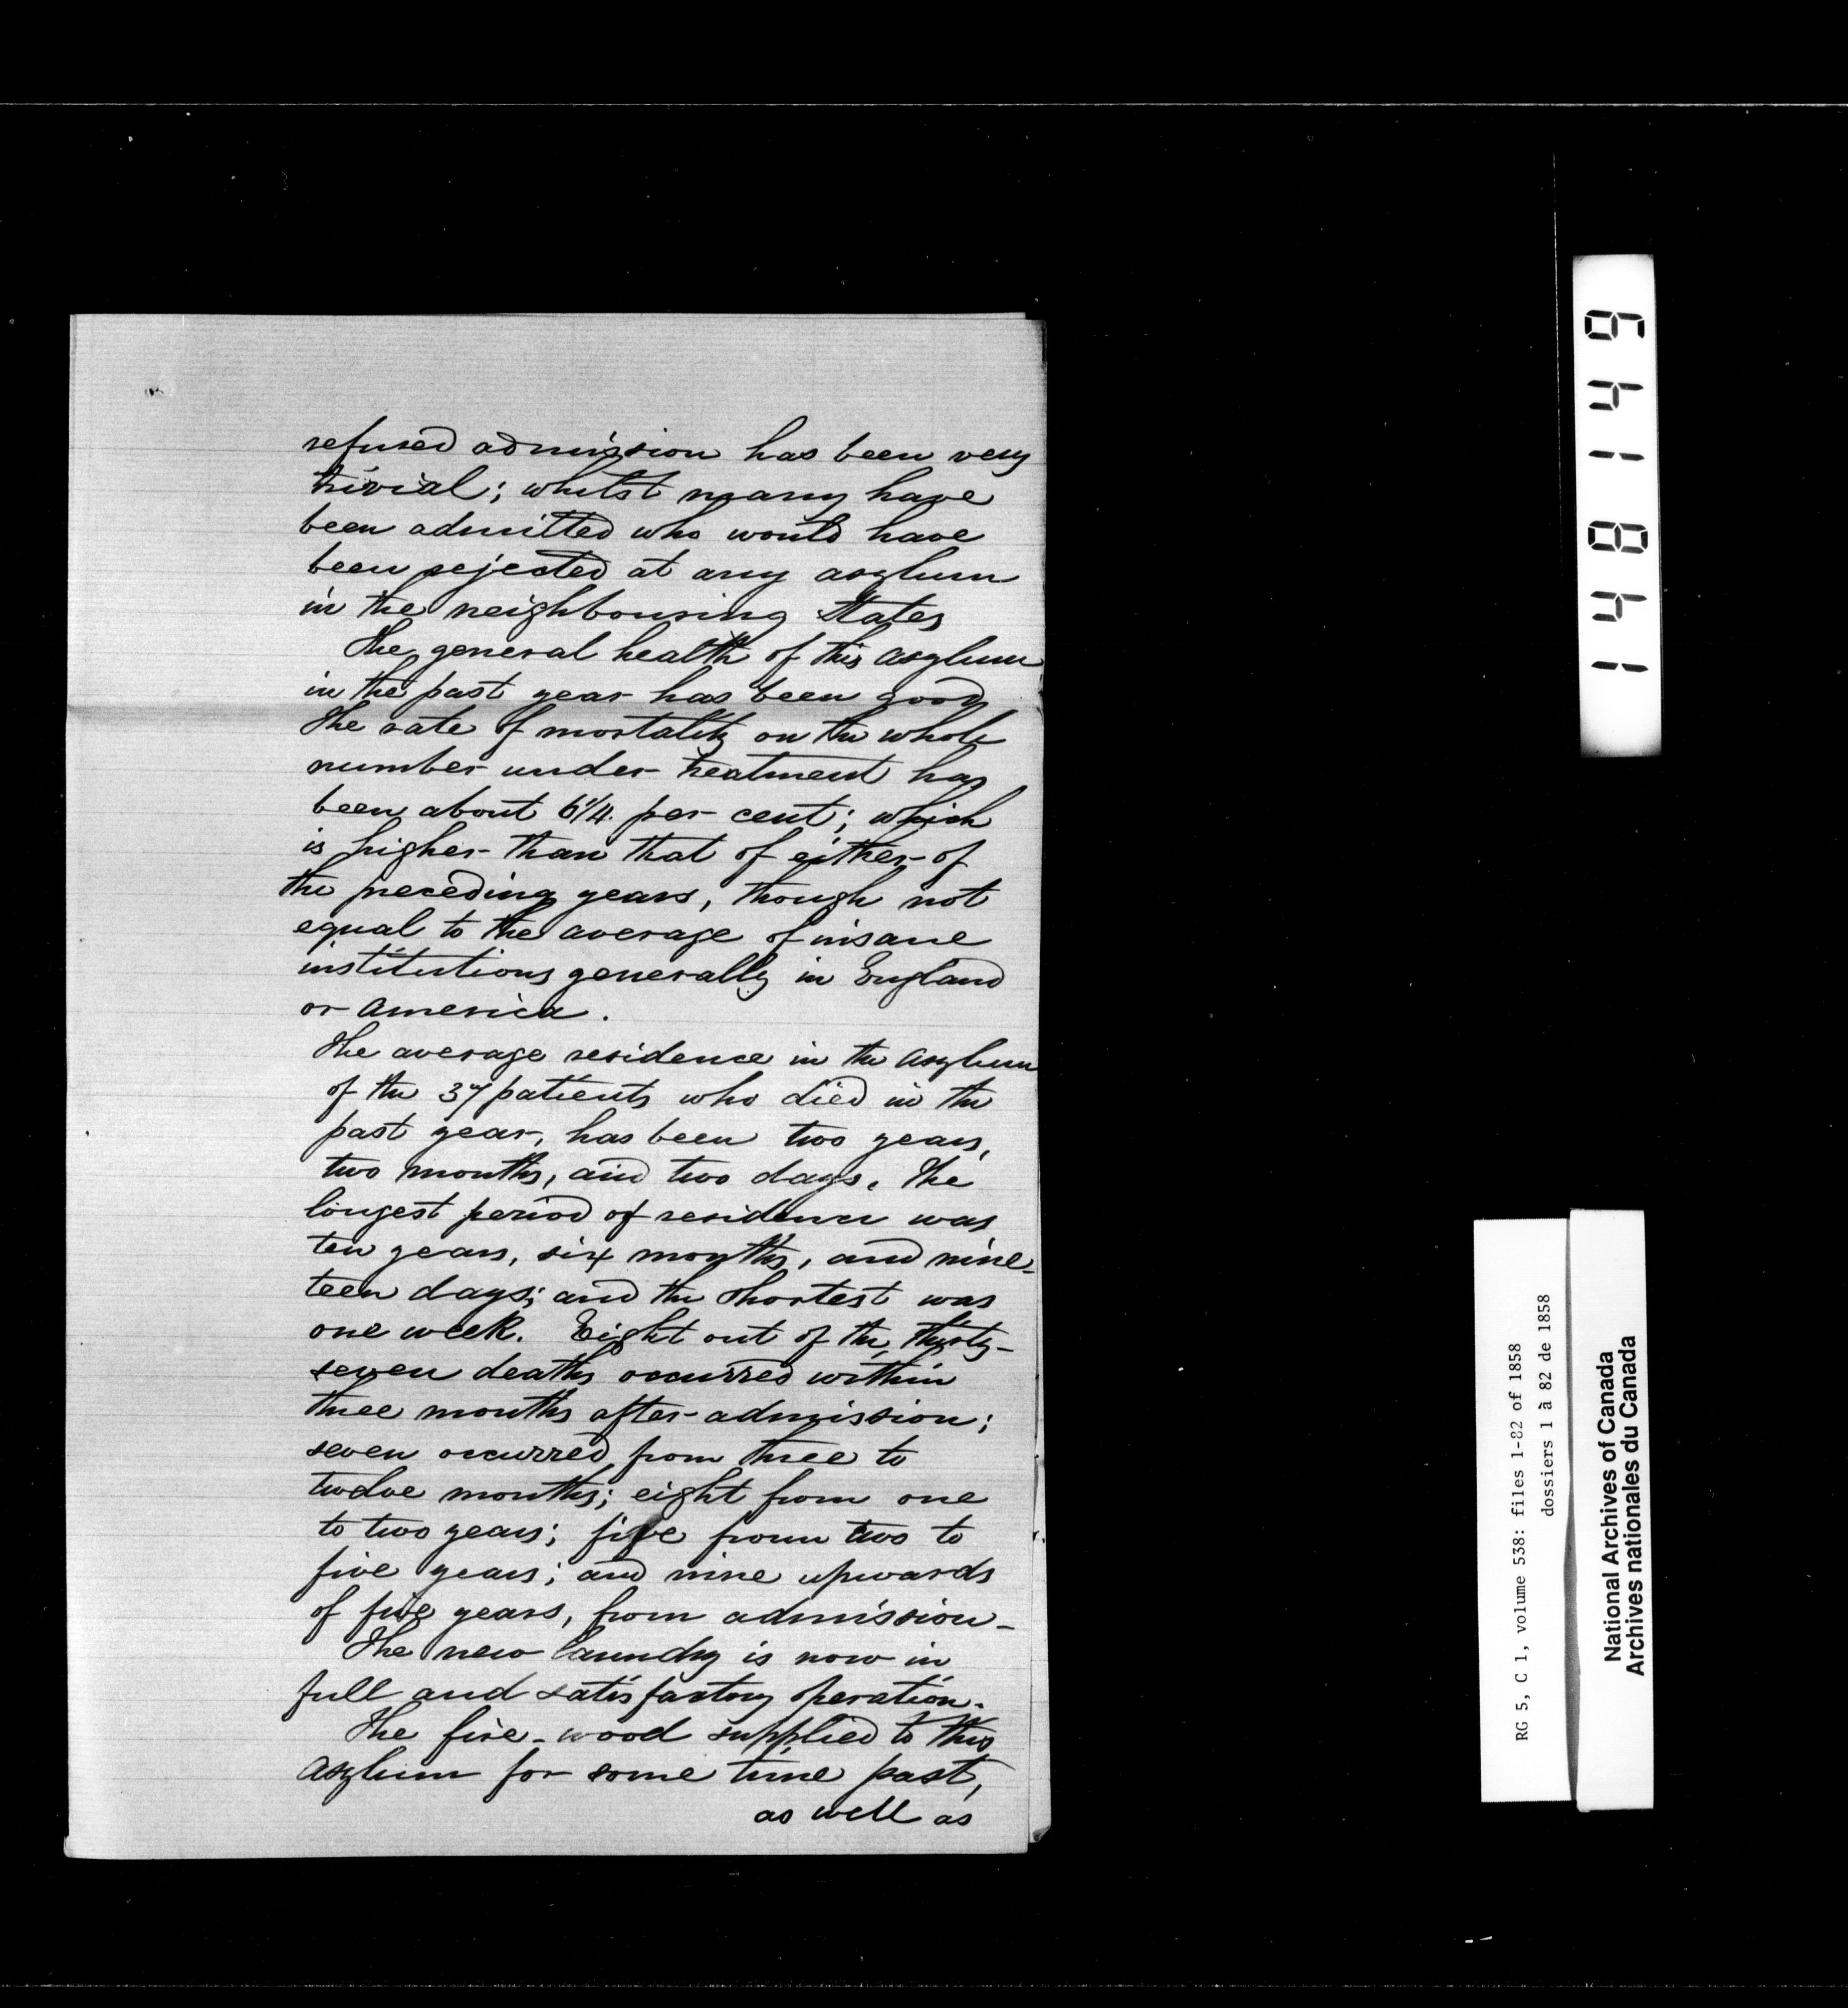 refused admission has been very
trivial; whilst many have
been admitted who would have
been rejected at any asylum
in the neighbouring States
The general health of this asylum
in the past year has been good
The rate of mortality on the whole
number under treatment has
been about 6 1/4 per cent; which
is higher than that of either of
the preceding years, though not
equal to the average of insane
institutions generally in England
or America.
The average residence in the Asylum
of the 37 patients who died in the
past year, has been two years,
two months, and two days. The
longest period of residence was
ten years, six months, and nine-
teen days; and the shortest was
one week. Eight out of the thirty-
seven deaths occurred within
three months after admission;
seven occurred from three to
twelve months; eight from one
to two years; five from two to
five years; and nine upwards
of five years, from admission-
The new laundry is now in
full and satisfactory operation.
The fire-wood supplied to this
Asylum for some time past,
as well as
148149
RG 5, C 1, volume 538: files 1-82 of 1858
dossiers 1 à 82 de 1858
National Archives of Canada
Archives nationales du Canada